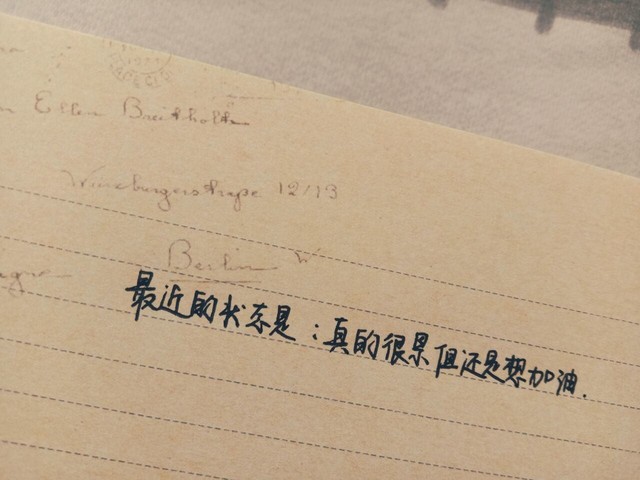 Ellen
12/13
Berlin W
最近的状态是：真的很累但还是想加油.